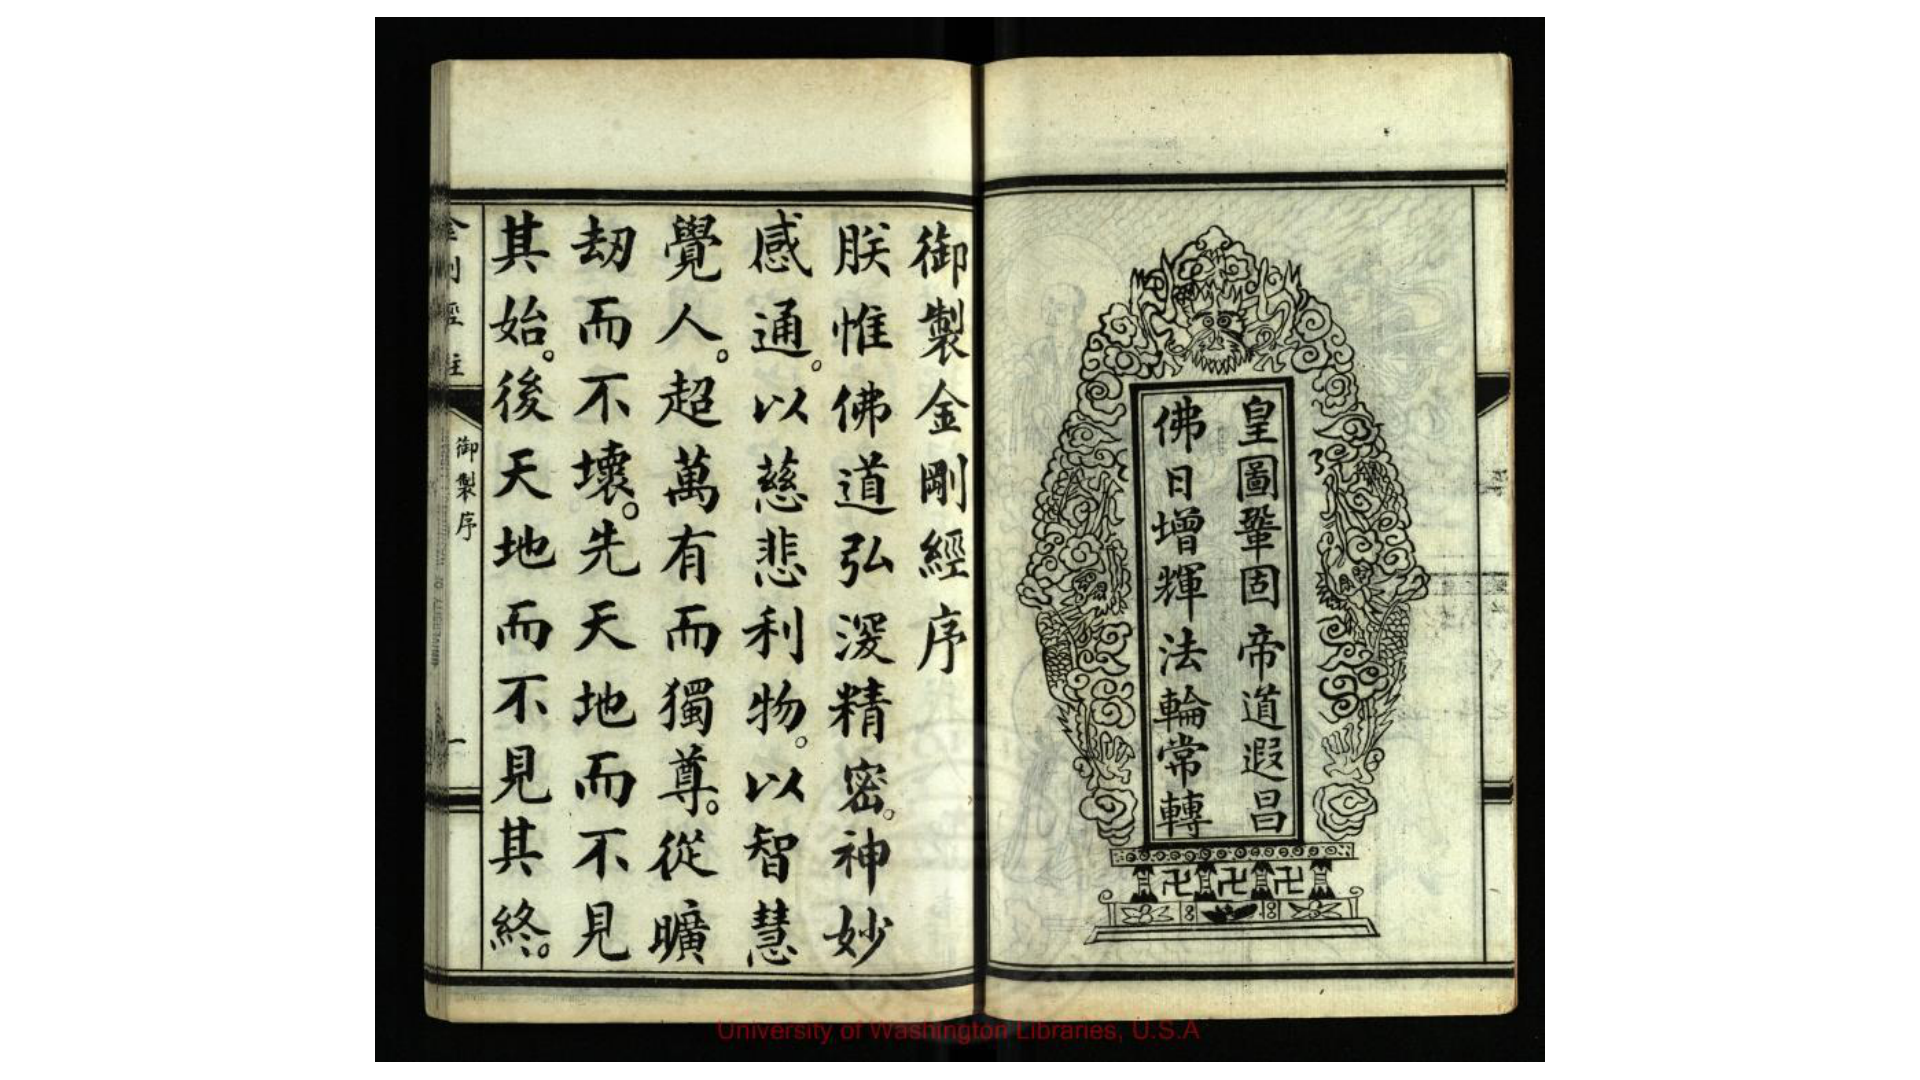 皇圖鞏固帝道遐昌
佛日增輝法輪常轉
御製金剛經序
朕惟佛道弘深精密。神妙
感通。以慈悲利物。以智慧
覺人。超萬有而獨尊。從曠
劫而不壞。先天地而不見
其始。後天地而不見其終。
金剛經註
御製序
一
University of Washington Libraries, U.S.A